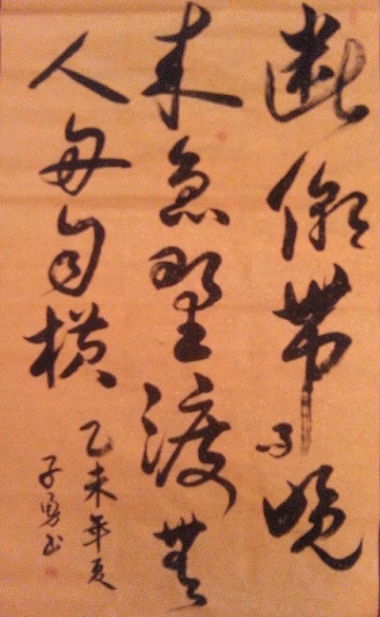 春潮帶雨晚
来急野渡無
人舟自横
乙未年夏
子勇书